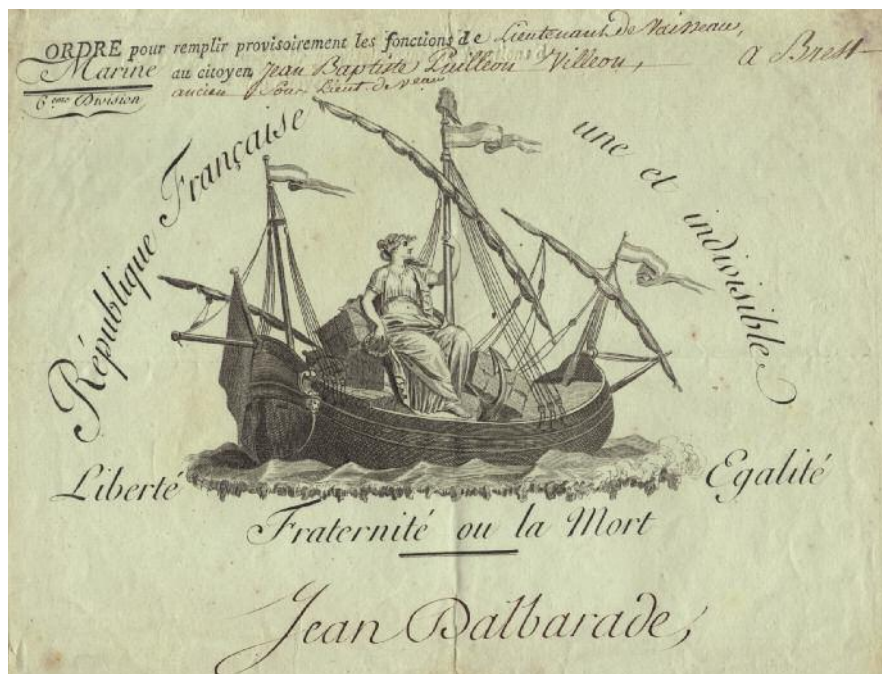 ORDRE pour remplir provisoirement les fonctions de Lieutenant de Vaisseau,
Marine au citoyen Jean Baptiste Villeon, a Brest
6eme Division ancien Sous Lieut. de Veau
République Française une et indivisible
Liberté Egalité
Fraternité ou la Mort
Jean Dalbarade,